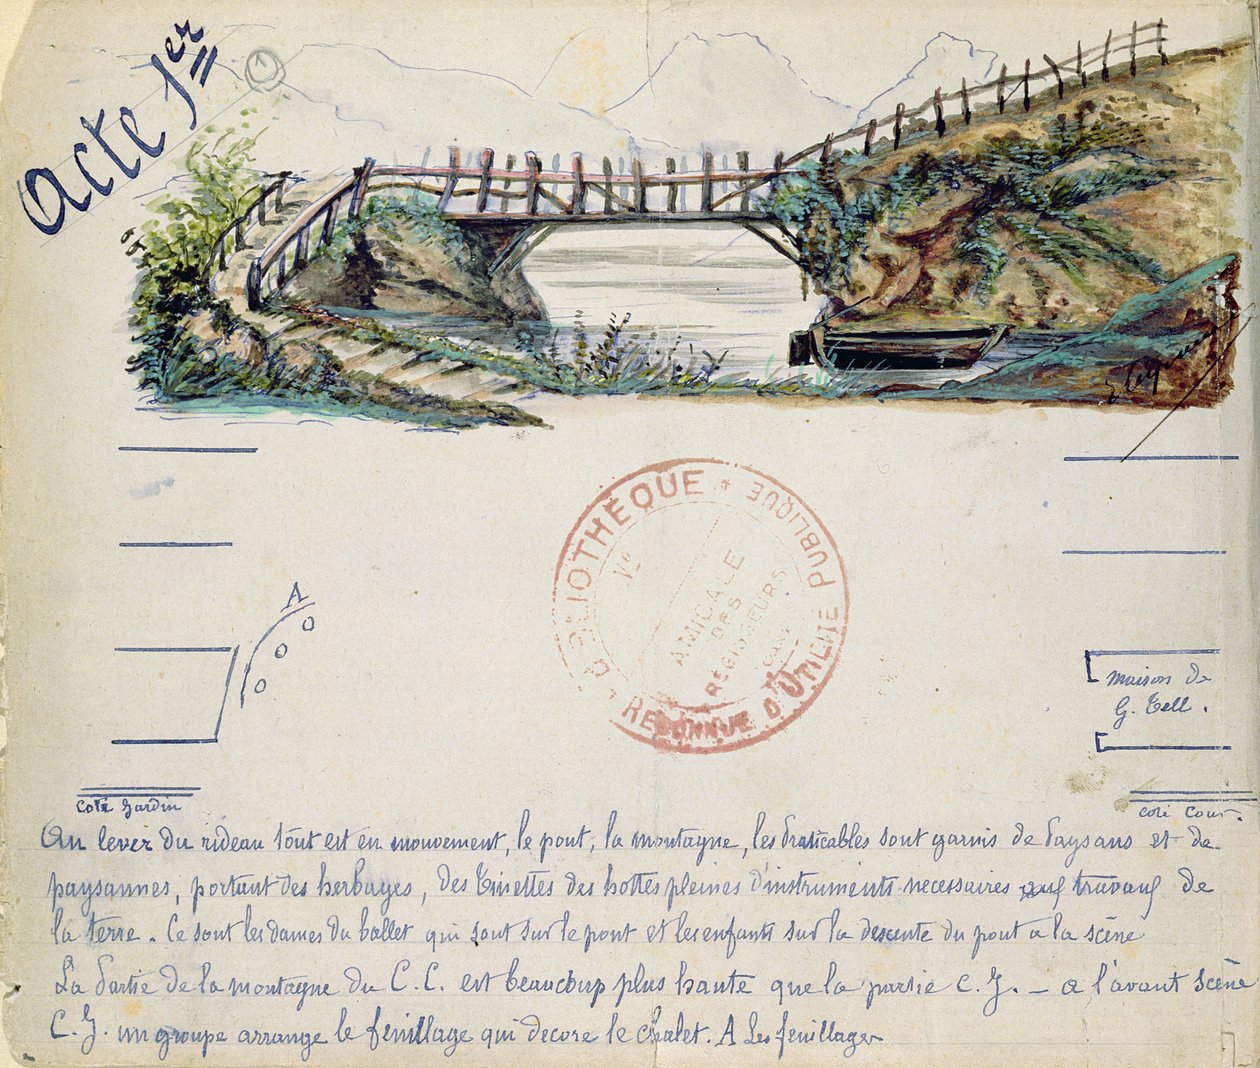 Acte 1er
1
A
BIBLIOTHÈQUE * PUBLIQUE
RECONNUE D'UTILITÉ
No
AMICALE
DES
RÉGISSEURS
maison de
G. Tell.
Coté Jardin
Coté Cour.
Au lever du rideau tout est en mouvement, le pont, la montagne, les praticables sont garnis de paysans et de
paysannes, portant des herbages, des tinettes des hottes pleines d'instruments necessaires aux travaux de
la terre. Ce sont les dames du ballet qui sont sur le pont et les enfants sur la descente du pont a la scène
La partie de la montagne du C. C. est beaucoup plus haute que la partie C. J. - a l'avant scène
C. J. un groupe arrange le feuillage qui decore le chalet. A Les feuillages